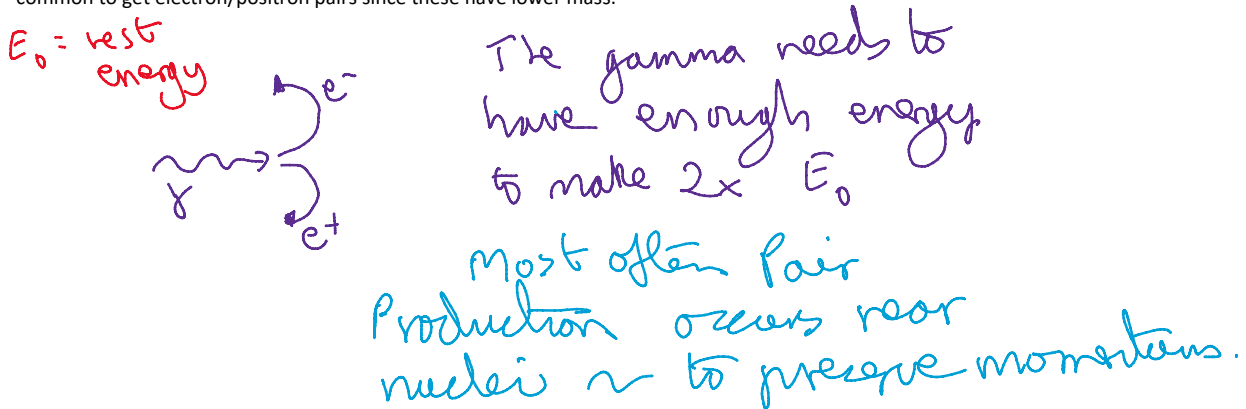 common to get electron/positron pairs since these have lower mass.
E₀ = rest
energy
e⁻
γ
e⁺
The gamma needs to
have enough energy
to make 2x E₀
Most often Pair
Production occurs near
nuclei ~ to preserve momentum.